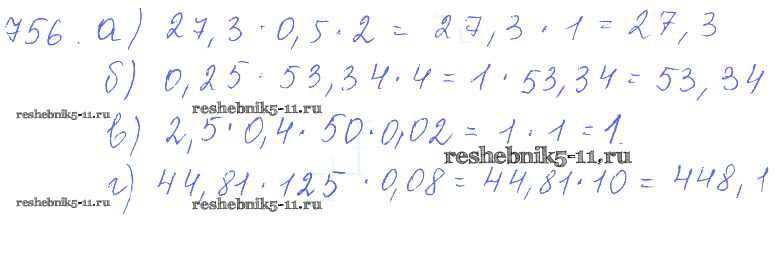 756. а) 27,3 · 0,5 · 2 = 27,3 · 1 = 27,3
б) 0,25 · 53,34 · 4 = 1 · 53,34 = 53,34
reshebnik5-11.ru reshebnik5-11.ru
в) 2,5 · 0,4 · 50 · 0,02 = 1 · 1 = 1.
reshebnik5-11.ru
г) 44,81 · 125 · 0,08 = 44,81 · 10 = 448,1
reshebnik5-11.ru reshebnik5-11.ru